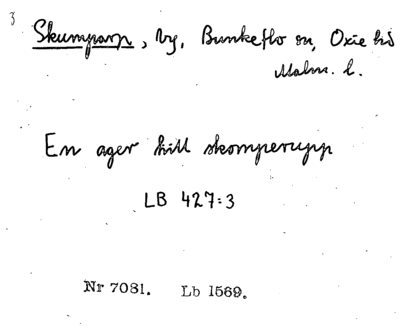 3
Skumparp, by, Bunkeflo sn, Oxie hd
Malm. l.
En ager till skomperupp
LB 427:3
Nr 7081. Lb 1569.